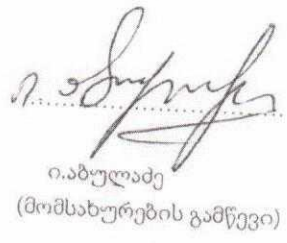 ი.აბულაძე
(მომსახურების გამწევი)